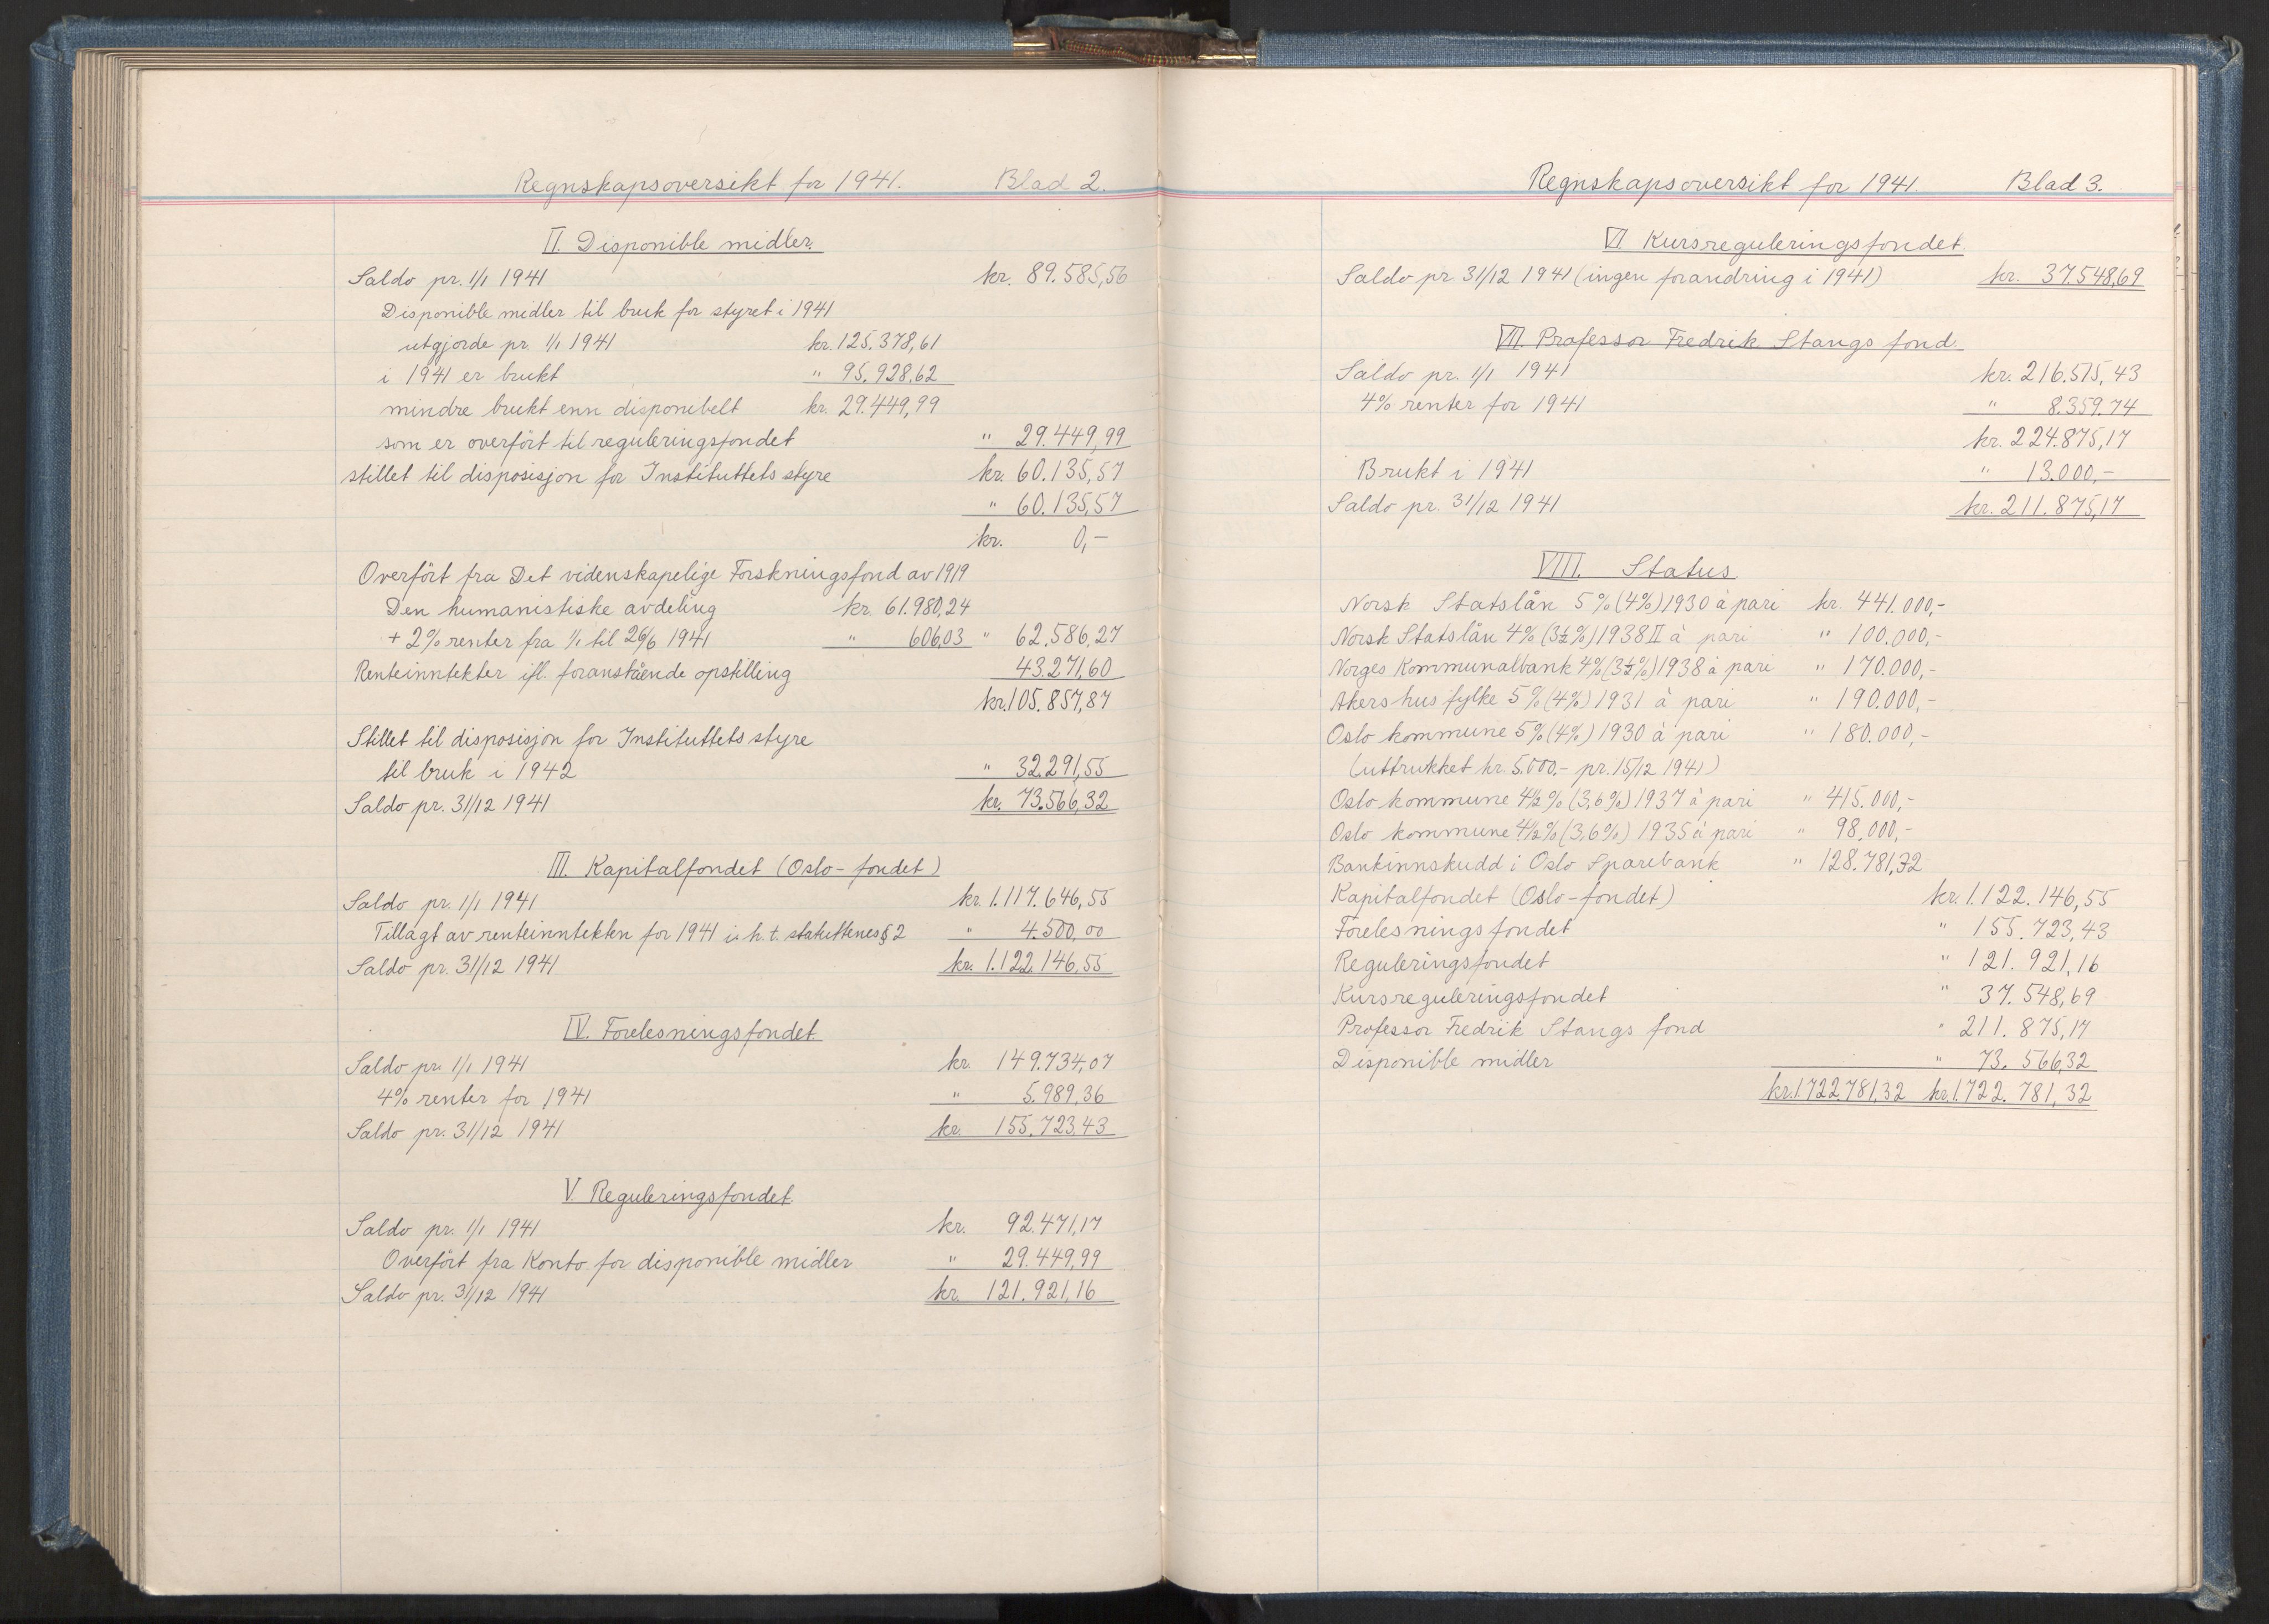 Regnskapsoversikt for 1941. Blad 2.
II. Disponible midler.
Saldo pr. 1/1 1941 kr. 89.585,56
Disponible midler til bruk for styret i 1941
utgjorde pr. 1/1 1941 kr. 125.378,61
i 1941 er brukt " 95.928,62
mindre brukt enn disponibelt kr. 29.449,99
som er overført til reguleringsfondet " 29.449,99
stillet til disposisjon for Instituttets styre kr. 60.135,57
" 60.135,57
kr. 0,-
Overført fra Det videnskapelige Forskningsfond av 1919
Den humanistiske avdeling kr. 61.980,24
+ 2% renter fra 1/1 til 26/6 1941 " 606,03 " 62.586,27
Renteinntekter ifl. foranstående opstilling 43.271,60
kr. 105.857,87
Stillet til disposisjon for Instituttets styre
til bruk i 1942 " 32.291,55
Saldo pr. 31/12 1941 kr. 73.566,32
III. Kapitalfondet (Oslo-fondet)
Saldo pr. 1/1 1941 kr. 1.117.646,55
Tillagt av renteinntekten for 1941 i h. t. statuttenes § 2 " 4.500,00
Saldo pr. 31/12 1941 kr. 1.122.146,55
IV. Forelesningsfondet.
Saldo pr. 1/1 1941 kr. 149.734,07
4% renter for 1941 " 5.989,36
Saldo pr. 31/12 1941 kr. 155.723,43
V. Reguleringsfondet.
Saldo pr. 1/1 1941 kr. 92.471,17
Overført fra Konto for disponible midler " 29.449,99
Saldo pr. 31/12 1941 kr. 121.921,16
Regnskapsoversikt for 1941. Blad 3.
VI. Kursreguleringsfondet.
Saldo pr. 31/12 1941 (ingen forandring i 1941) kr. 37.548,69
VII. Professor Fredrik Stangs fond.
Saldo pr. 1/1 1941 kr. 216.515,43
4% renter for 1941 " 8.359,74
kr. 224.875,17
Brukt i 1941 " 13.000,-
Saldo pr. 31/12 1941 kr. 211.875,17
VIII. Status
Norsk Statslån 5% (4%) 1930 à pari kr. 441.000,-
Norsk Statslån 4% (3½%) 1938 II à pari " 100.000,-
Norges Kommunalbank 4% (3½%) 1938 à pari " 170.000,-
Akershus fylke 5% (4%) 1931 à pari " 190.000,-
Oslo kommune 5% (4%) 1930 à pari " 180.000,-
(uttrukket kr. 5.000.- pr. 15/12 1941)
Oslo kommune 4½% (3,6%) 1937 à pari " 415.000,-
Oslo kommune 4½% (3,6%) 1935 à pari " 98.000,-
Bankinnskudd i Oslo Sparebank " 128.781,32
Kapitalfondet (Oslo-fondet) kr. 1.122.146,55
Forelesningsfondet " 155.723,43
Reguleringsfondet " 121.921,16
Kursreguleringsfondet " 37.548,69
Professor Fredrik Stangs fond " 211.875,17
Disponible midler " 73.566,32
kr. 1.722.781,32 kr. 1.722.781,32